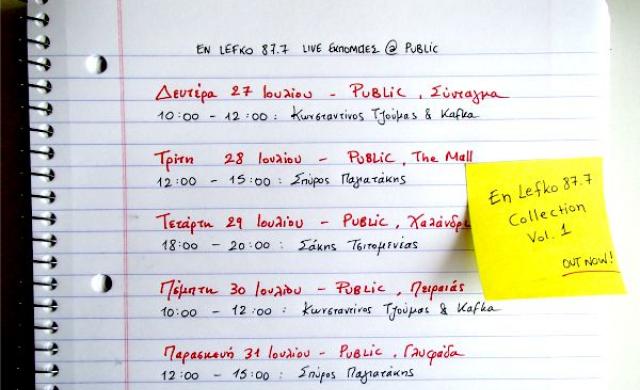 EN LEFKO 87.7 LIVE ΕΚΠΟΜΠΕΣ @ PUBLIC
Δευτέρα 27 Ιουλίου - PUBLIC, Σύνταγμα
10:00 - 12:00 : Κωνσταντίνος Τζούμας & Kafka
Τρίτη 28 Ιουλίου - PUBLIC, The Mall
12:00 - 15:00 : Σπύρος Παγιατάκης
Τετάρτη 29 Ιουλίου - PUBLIC, Χαλάνδρι
18:00 - 20:00 : Σάκης Τσιτομενέας
Πέμπτη 30 Ιουλίου - PUBLIC, Πειραιάς
10:00 - 12:00 : Κωνσταντίνος Τζούμας & Kafka
Παρασκευή 31 Ιουλίου - PUBLIC, Γλυφάδα
12:00 - 15:00 : Σπύρος Παγιατάκης
En Lefko 87.7
Collection
Vol. 1
OUT NOW!